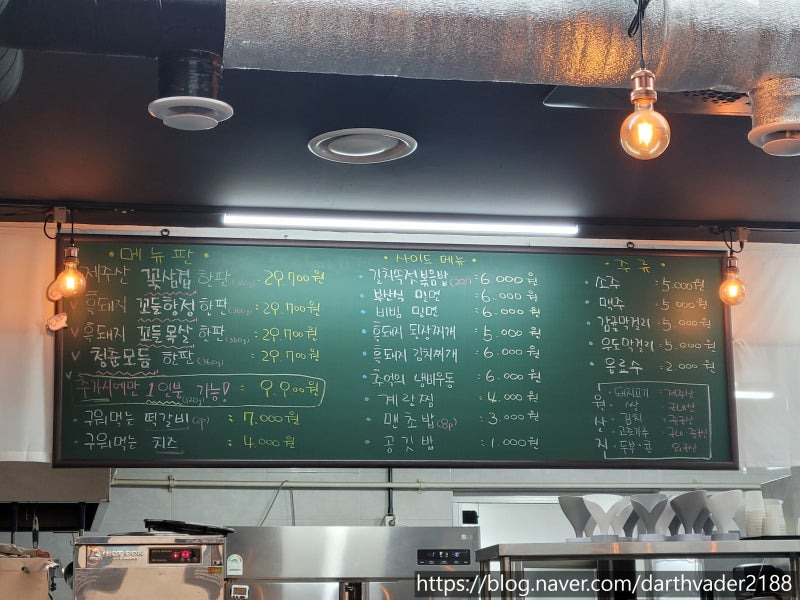 메뉴판
제주산 꼬들삼겹 한판(360g) : 29.700원
흑돼지 꼬들항정 한판(360g) : 29.700원
흑돼지 꼬들목살 한판(360g) : 29.700원
청춘모듬 한판(360g) : 29.700원
추가시에만 1인분(120g) 가능! = 9.900원
구워먹는 떡갈비(2p) : 7.000원
구워먹는 치즈 : 4.000원
사이드 메뉴
김치뚝젓볶음밥(2인) : 6.000원
복산식 밀면 : 6.000원
비빔 밀면 : 6.000원
흑돼지 된장찌개 : 5.000원
흑돼지 김치찌개 : 6.000원
추억의 냄비우동 : 6.000원
계란찜 : 4.000원
맨초밥(8p) : 3.000원
공깃밥 : 1.000원
주류
소주 : 5.000원
맥주 : 5.000원
감귤막걸리 : 5.000원
우도막걸리 : 5.000원
음료수 : 2.000원
원산지
돼지고기 : 제주산
쌀 : 국내산
김치 : 중국산
고춧가루 : 국내·중국산
두부·콩 : 외국산
HOTBOX
LG
https://blog.naver.com/darthvader2188